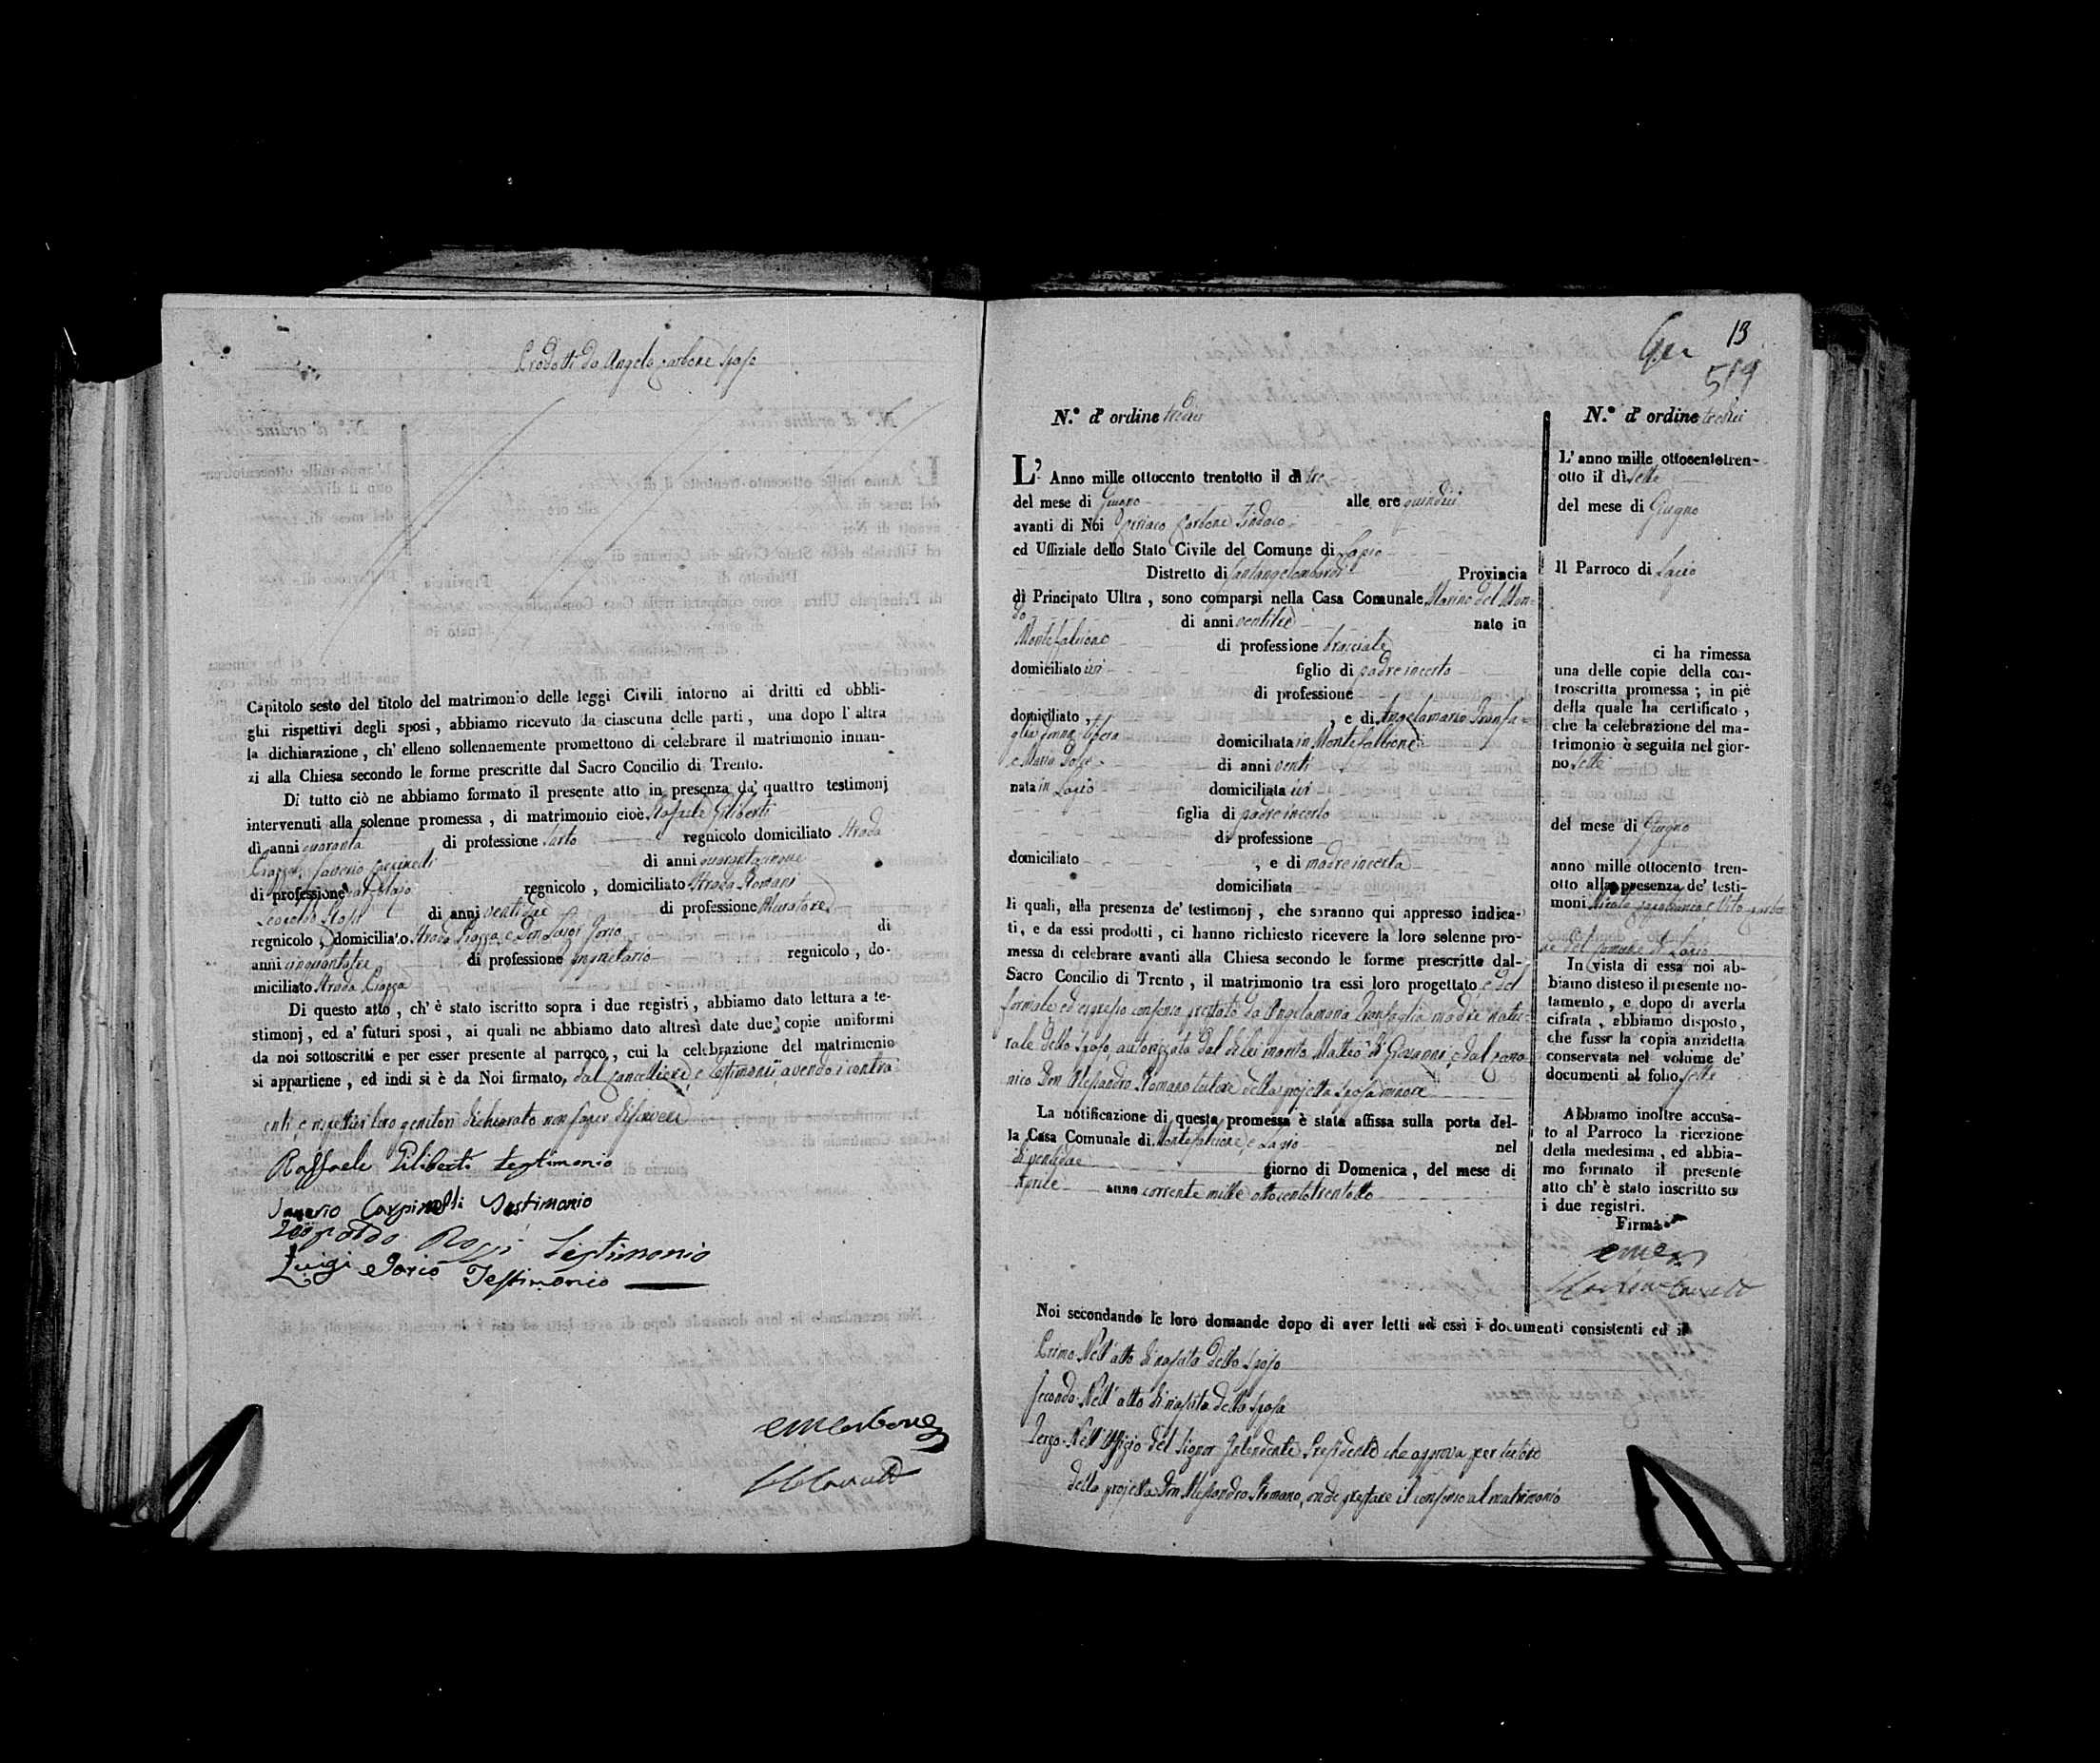 Prodotti da Angelo Carbone Sposo
Capitolo sesto del titolo del matrimonio delle leggi Civili intorno ai dritti ed obbli-
ghi rispettivi degli sposi, abbiamo ricevuto da ciascuna delle parti, una dopo l'altra
la dichiarazione, ch'elleno sollennemente promettono di celebrare il matrimonio innan-
zi alla Chiesa secondo le forme prescritte dal Sacro Concilio di Trento.
Di tutto ciò ne abbiamo formato il presente atto in presenza da' quattro testimonj
intervenuti alla solenne promessa, di matrimonio cioè Rafaele Giliberti
di anni quaranta di professione Sarto regnicolo domiciliato Strada
Piazza, Saverio Carpinelli di anni quarantacinque
di professione regnicolo, domiciliato Strada Romani
Leopoldo Rossi di anni ventidue di professione Muratore
regnicolo, domiciliato Strada Piazza, e Don Luigi Iorio di
anni cinquantatre di professione proprietario regnicolo, do-
miciliato Strada Piazza
Di questo atto, ch'è stato iscritto sopra i due registri, abbiamo dato lettura a te-
stimonj, ed a' futuri sposi, ai quali ne abbiamo dato altresì date due copie uniformi
da noi sottoscritti e per esser presente al parroco, cui la celebrazione del matrimonio
si appartiene, ed indi si è da Noi firmato, dal Cancelliere, e testimonii, avendo i contra
enti, e rispettivi loro genitori dichiarato non saper scrivere
Raffaele Giliberti testimonio
Saverio Carpinelli Testimonio
Leopoldo Rossi testimonio
Luigi Iorio Testimonio
13
519
N.º d'ordine tredici
L'Anno mille ottocento trentotto il dì tre
del mese di Giugno alle ore quindici
avanti di Noi Ciriaco Carbone Sindaco
ed Uffiziale dello Stato Civile del Comune di Lapio
Distretto di Santangelolombardi Provincia
di Principato Ultra, sono comparsi nella Casa Comunale Marino del Mon-
do di anni ventitre nato in
Montefalcione di professione bracciale
domiciliato ivi figlio di padre incerto
di professione
domiciliato, e di Angelamaria Tronfa=
glia donna libera domiciliata in Montefalcione
e Maria Dolce di anni venti
nata in Lapio domiciliata ivi
figlia di padre incerto
di professione
domiciliato, e di madre incerta
domiciliata
li quali, alla presenza de' testimonj, che saranno qui appresso indica-
ti, e da essi prodotti, ci hanno richiesto ricevere la loro solenne pro-
messa di celebrare avanti alla Chiesa secondo le forme prescritte dal-
Sacro Concilio di Trento, il matrimonio tra essi loro progettato e del
formale ed espresso consenso prestato da Angelamaria Tronfaglia madre natu=
rale dello Sposo, autorizzata dal di lei marito Matteo di Giovanni, e dal Cano
nico Don Alessandro Romano tutore della projetta sposa minore
La notificazione di questa promessa è stata affissa sulla porta del-
la Casa Comunale di Montefalcione, e Lapio nel
di ventidue giorno di Domenica, del mese di
Aprile anno corrente mille ottocentotrentotto
Noi secondando le loro domande dopo di aver letti ad essi i documenti consistenti ed il
Primo. Nell'atto di nascita dello Sposo
Secondo. Nell'atto di nascita della Sposa
Terzo. Nell'Uffizio del Signor Intendente Presidente che approva per tutore
della projetta Don Alessandro Romano, onde prestare il consenso al matrimonio
N.º d'ordine tredici
L'anno mille ottocentotren-
otto il dì sette
del mese di Giugno
Il Parroco di Lapio
ci ha rimessa
una delle copie della con-
troscritta promessa; in piè
della quale ha certificato,
che la celebrazione del ma-
trimonio è seguita nel gior-
no sette
del mese di Giugno
anno mille ottocento tren-
otto alla presenza de' testi-
moni Nicola Capobianco e Vito Carbo
ne del Comune di Lapio
In vista di essa noi ab-
biamo disteso il presente no-
tamento, e dopo di averla
cifrata, abbiamo disposto,
che fusse la copia anzidetta
conservata nel volume de'
documenti al folio sette
Abbiamo inoltre accusa-
to al Parroco la ricezione
della medesima, ed abbia-
mo formato il presente
atto ch'è stato inscritto su
i due registri.
Firma